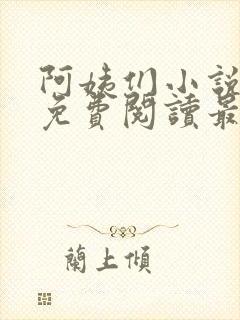 阿姨们小說
免費閱讀最
蘭上傾